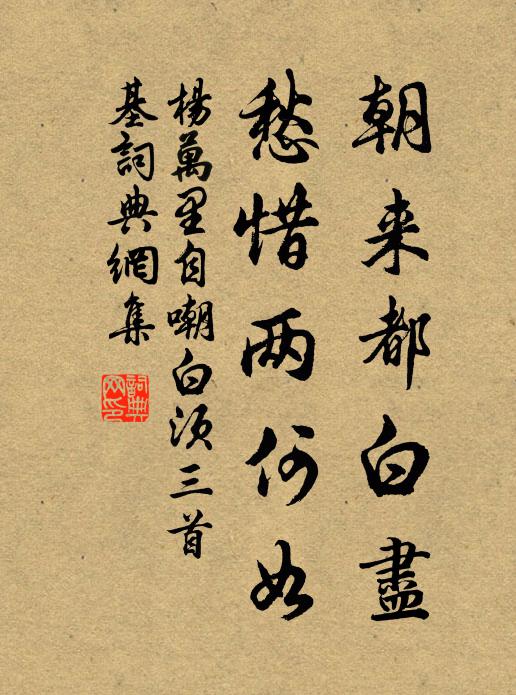 朝来都白盡
愁惜两何如
楊萬里自嘲白须三首
基詞典網集
詞典网印